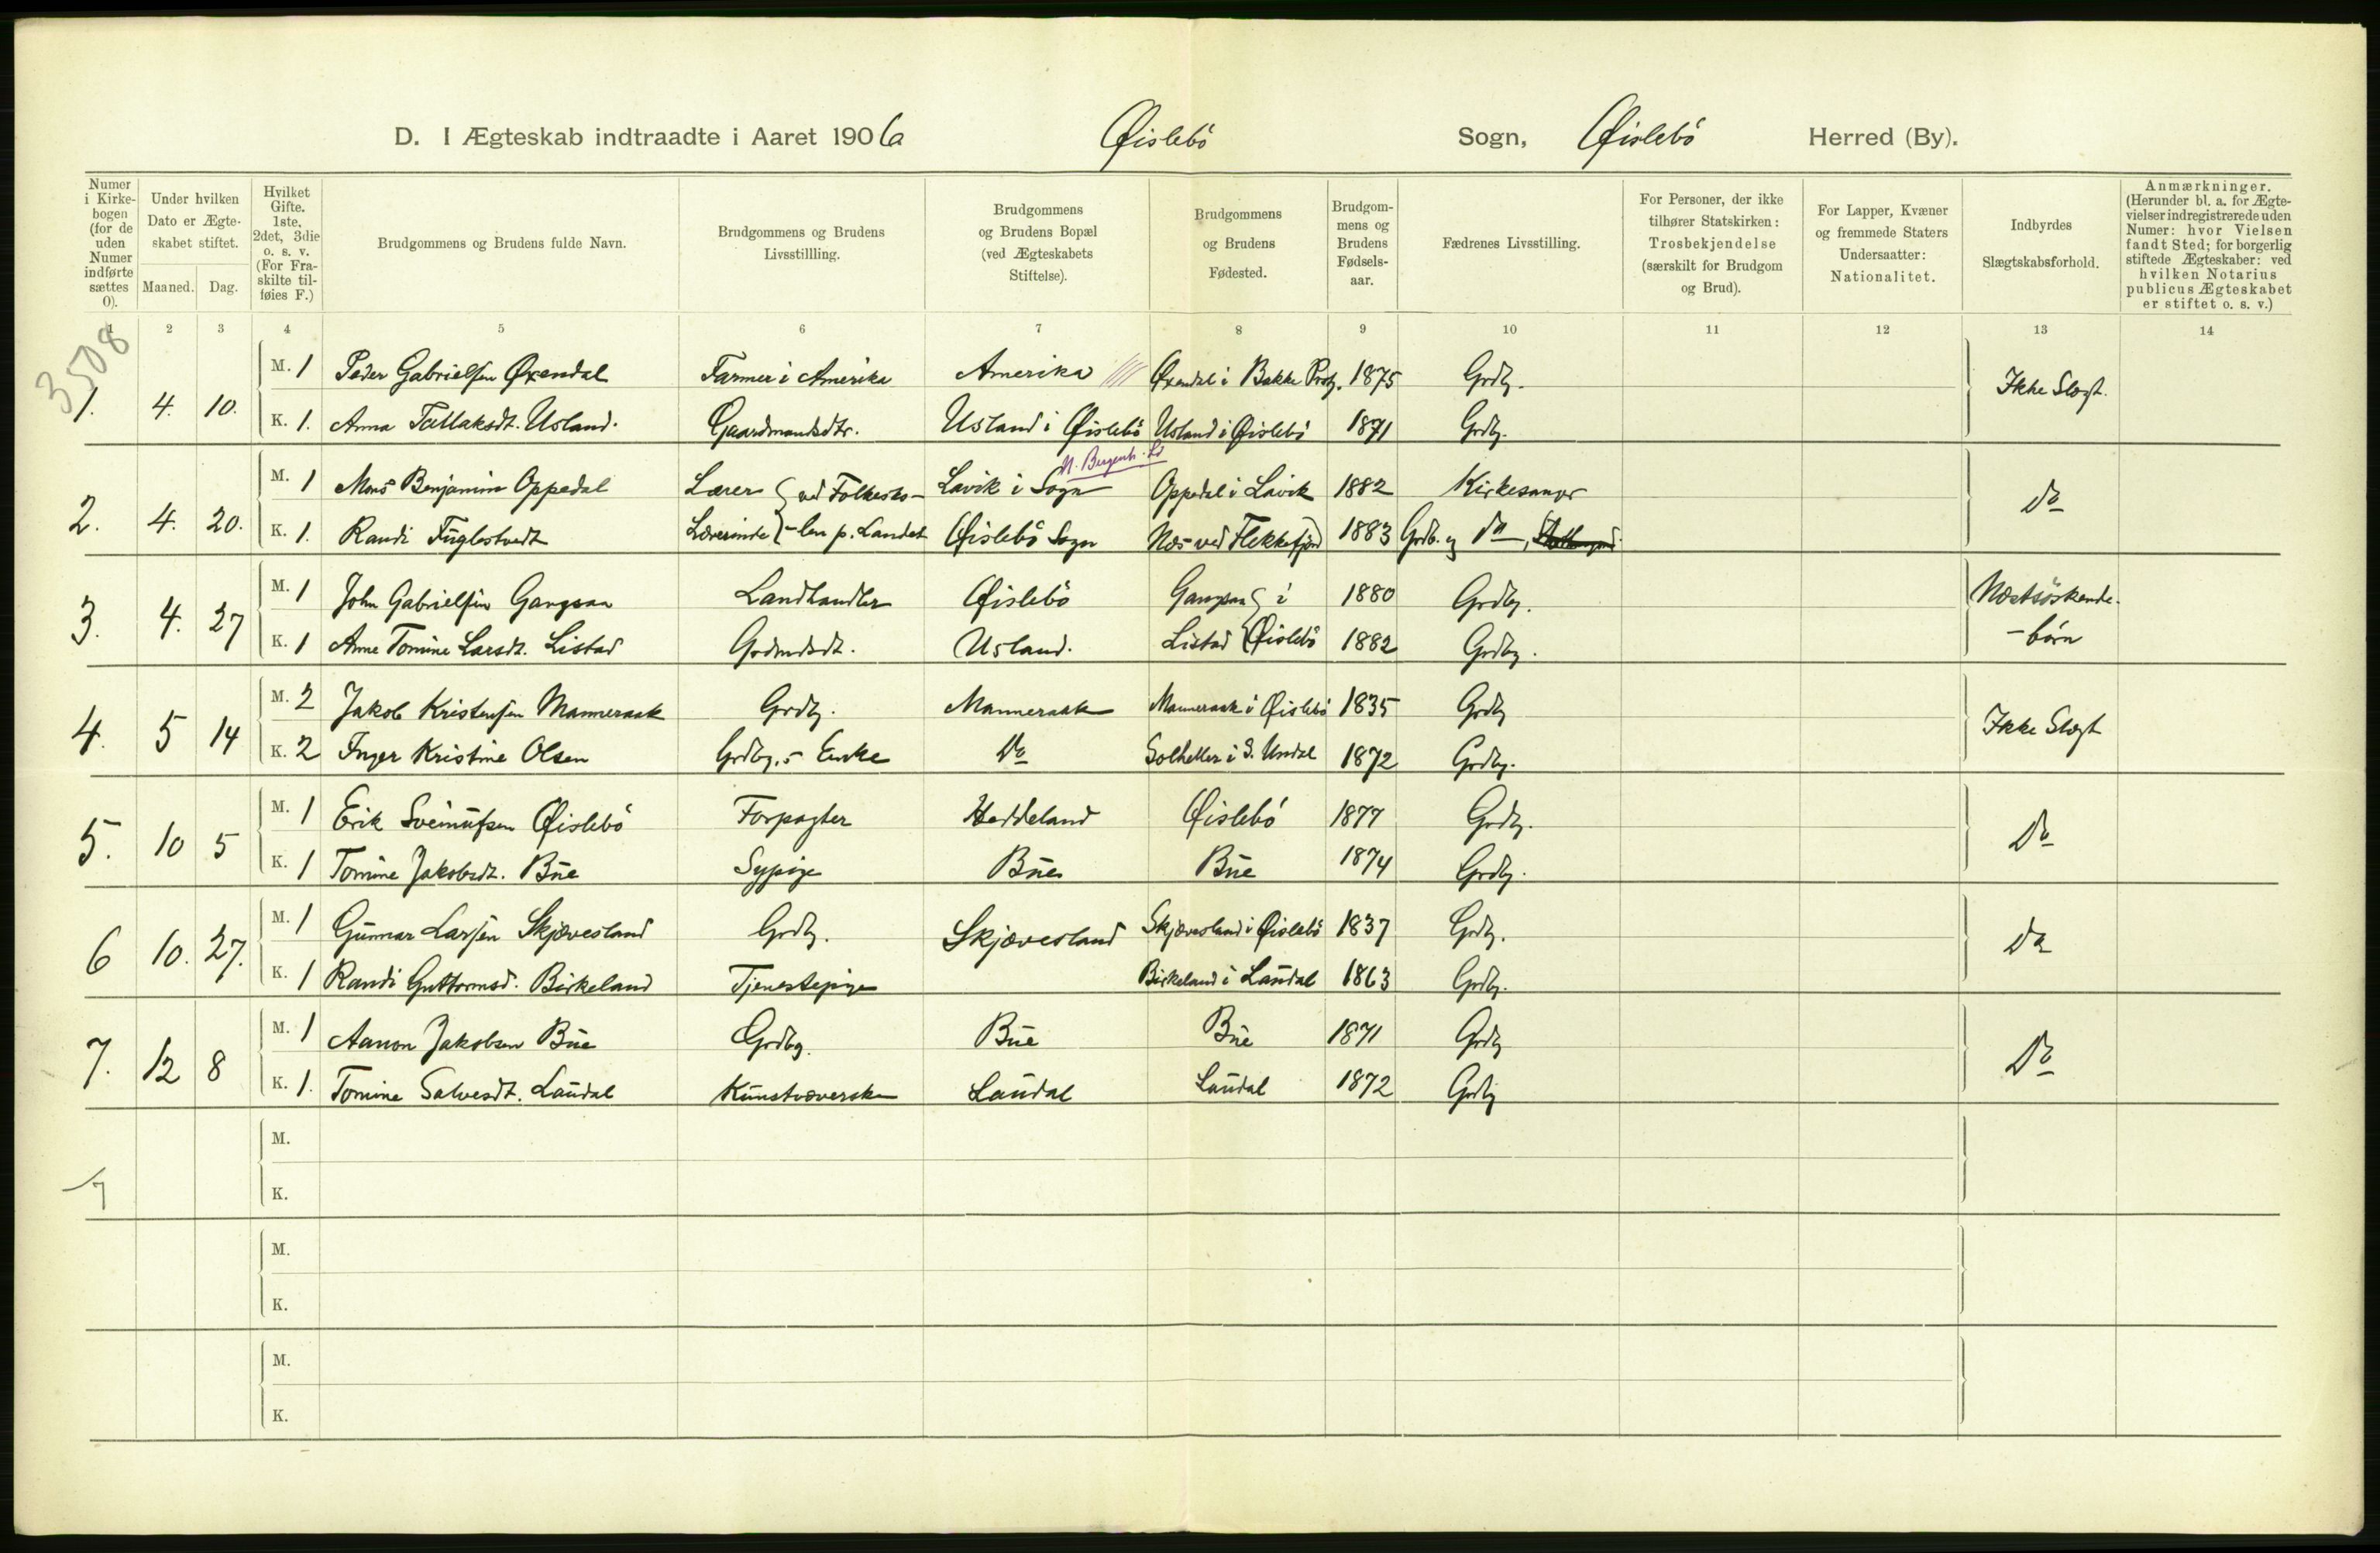 D. I Ægteskab indtraadte i Aaret 1906 Øislebö Sogn, Øislebö Herred (By).
Numer i Kirkebogen (for de uden Numer indførte sættes 0).
Under hvilken Dato er Ægteskabet stiftet.
Maaned. Dag.
Hvilket Gifte. 1ste, 2det, 3die o. s. v. (For Fraskilte tilføies F.)
Brudgommens og Brudens fulde Navn.
Brudgommens og Brudens Livsstillling.
Brudgommens og Brudens Bopæl (ved Ægteskabets Stiftelse).
Brudgommens og Brudens Fødested.
Brudgommens og Brudens Fødselsaar.
Fædrenes Livsstilling.
For Personer, der ikke tilhører Statskirken: Trosbekjendelse (særskilt for Brudgom og Brud).
For Lapper, Kvæner og fremmede Staters Undersaatter: Nationalitet.
Indbyrdes Slægtskabsforhold.
Anmærkninger. (Herunder bl. a. for Ægtevielser indregistrerede uden Numer: hvor Vielsen fandt Sted; for borgerlig stiftede Ægteskaber: ved hvilken Notarius publicus Ægteskabet er stiftet o. s. v.)
1 2 3 4 5 6 7 8 9 10 11 12 13 14
3508
1. 4. 10. M. 1 Peder Gabrielsen Øxendal Farmer i Amerika Amerika Øxendal i Bakke Prgj. 1875 Grdbr. Ikke Slægt.
K. 1. Anna Tallaksdt. Usland. Gaardmandsdtr. Usland i Øislebö Usland i Øislebö 1871 Grdbr.
N. Bergenh. 
2. 4. 20. M. 1 Mons Benjamin Oppedal Lærer ved Folkesko- Lavik i Sogn Oppedal i Lavik 1882 Kirkesanger do
K. 1. Randi Fuglestvedt Lærerinde -len p. Landet Øislebö Sogn Næs ved Flekkefjord 1883 Grdb. og do,
3. 4. 27 M. 1 John Gabrielsen Gangsaa Landhandler Øislebö Gangsaa i 1880 Grdbr. Næstsöskende-
K. 1 Anne Tomine Larsdt. Listad Grdmdsdt. Usland. Listad Øislebö 1882 Grdbr. -börn
4. 5 14 M. 2 Jakob Kristensen Manneraak Grdbr. Manneraak Manneraak i Øislebö 1835 Grdbr Ikke Slægt
K. 2 Inger Kristine Olsen Grdbr.s Enke Do Solheller i S. Undal 1872 Grdbr.
5. 10 5 M. 1 Erik Sveinufsen Øislebö Forpagter Heddeland Øislebö 1877 Grdbr. Do
K. 1 Tomine Jakobsdt. Bue Sypige Bue Bue 1874 Grdbr.
6 10. 27. M. 1 Gunnar Larsen Skjævesland Grdbr. Skjævesland Skjævesland i Øislebö 1837 Grdbr. Do
K. 1 Randi Guttormsd. Birkeland Tjenestepige Birkeland i Laudal 1863 Grdbr.
7. 12 8 M. 1 Aanon Jakobsen Bue Grdbr. Bue Bue 1871 Grdbr Do
K. 1. Tomine Salvesdt. Laudal Kunstvæverske Laudal Laudal 1872 Grdbr
M.
7
K.
M.
K.
M.
K.